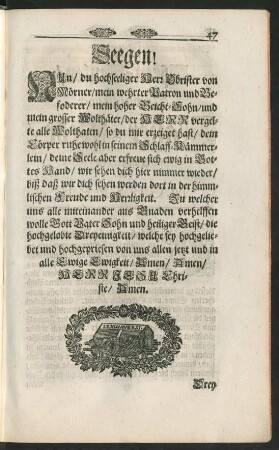 47
Seegen!
NUn/ du hochseeliger Herr Obrister von
Mörner/ mein wehrter Patron und Be-
foderer/ mein hoher Beicht-Sohn/ und
mein grosser Wolthäter/ der HERR vergel-
te alle Wolthaten/ so du mir erzeiget hast/ dein
Cörper ruhe wohl in seinem Schlaff-Kämmer-
lein/ deine Seele aber erfreue sich ewig in Got-
tes Hand/ wir sehen dich hier nimmer wieder/
biß daß wir dich sehen werden dort in der himm-
lischen Freude und Herrligkeit. Zu welcher
uns alle miteinander aus Gnaden verhelffen
wolle Gott Vater Sohn und heiliger Geist/ die
hochgelobte Dreyeinigkeit/ welche sey hochgelie-
bet und hochgepriesen von uns allen jetzt und in
alle Ewige Ewigkeit/ Amen/ Amen/
HERR JESU Chri-
ste/ Amen.
Drey